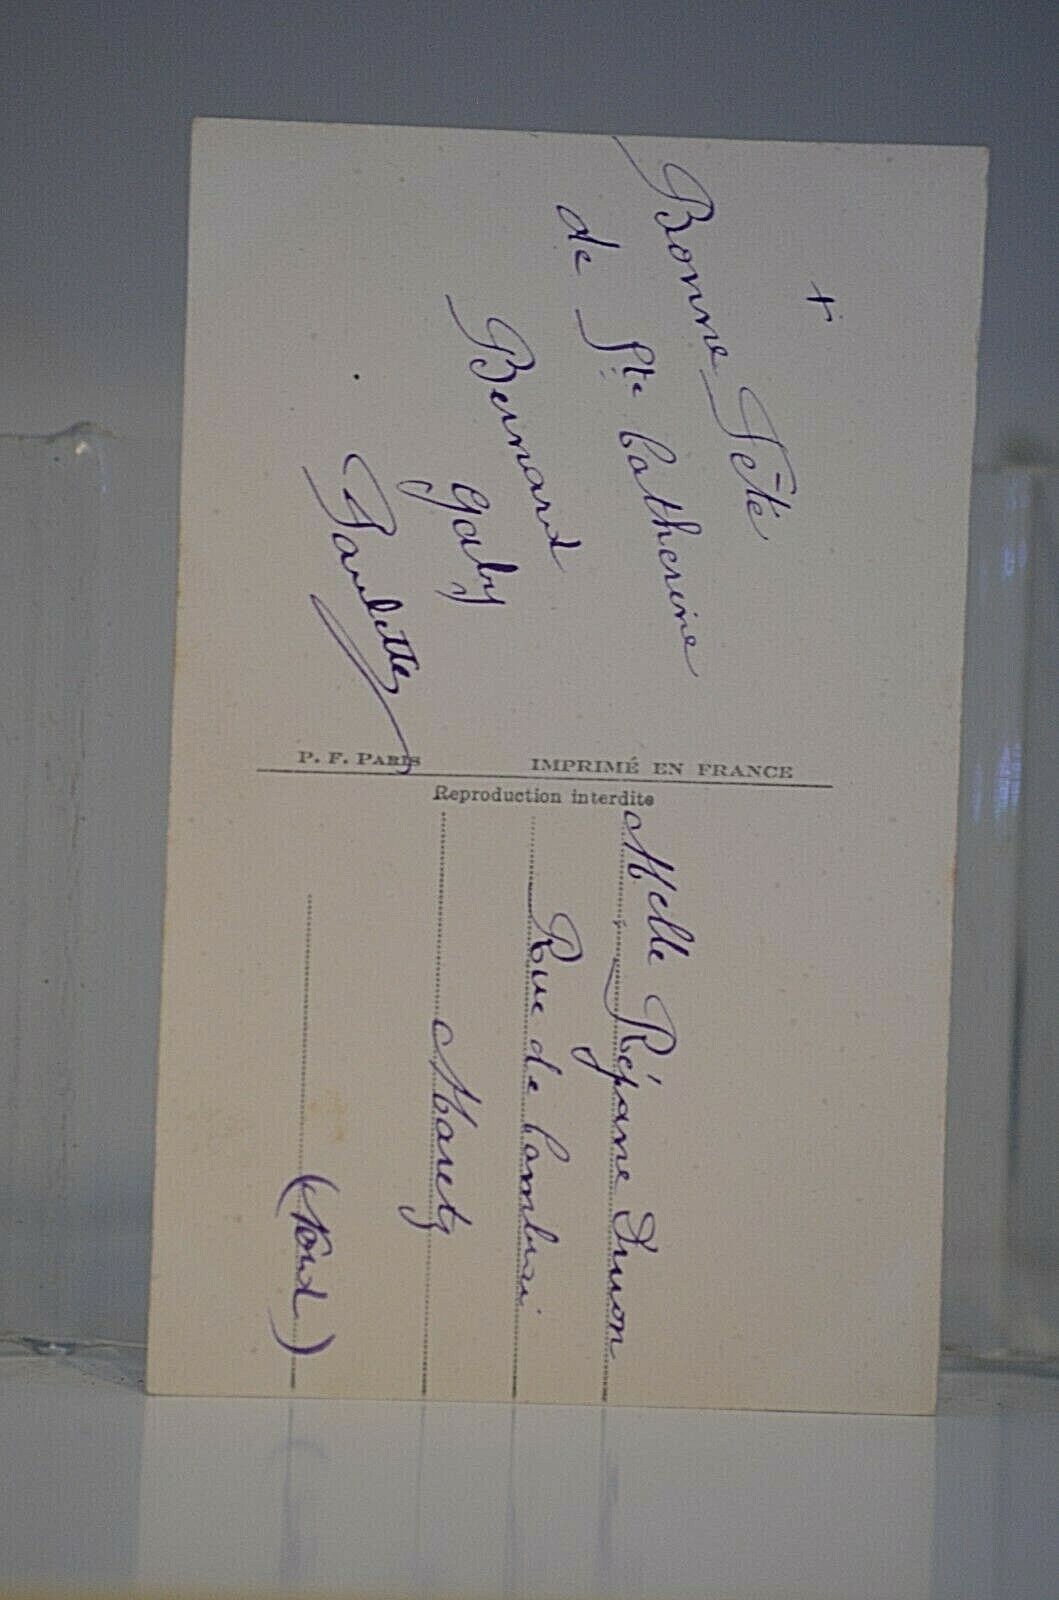 +
Bonne Fête
de Ste Catherine
Bernard
Gaby
Paulette
P. F. PARIS IMPRIMÉ EN FRANCE
Reproduction interdite
Melle Réjane Druon
Rue de Cambrai
Maretz
(Nord)